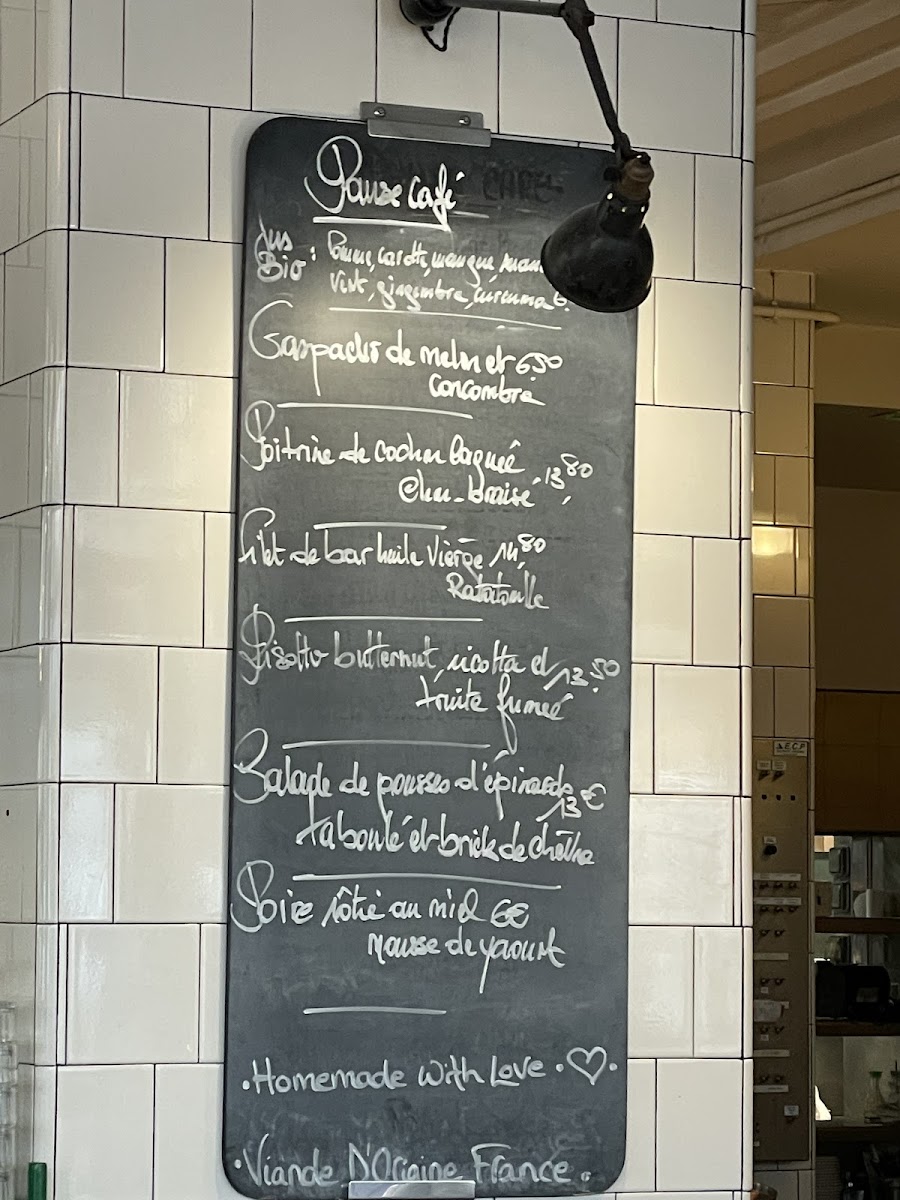 Pause café
Jus
Bio : Pomme, carotte, mangue,
Vert, gingembre, curcuma 6.
Gaspacho de melon et 6,50
concombre
Poitrine de cochon laquée
Chou braisé 13,80
Filet de bar huile vierge 14,80
Ratatouille
Risotto butternut, ricotta et 13,50
truite fumée
Salade de pousses d'épinards
13€
taboulé et brick de chèvre
Poire rôtie au miel 6€
mousse de yaourt
• Homemade with Love • ♡ •
• Viande D'Origine France •
A.E.C.P